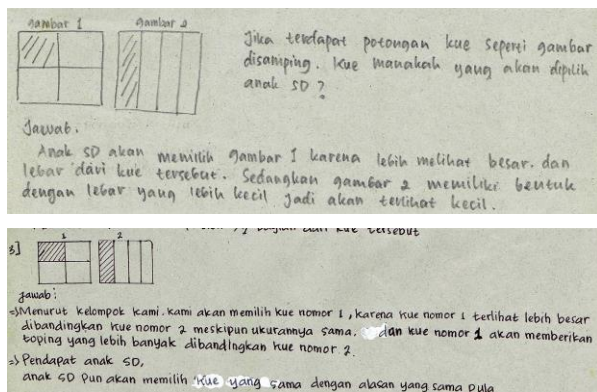 gambar 1
gambar 2
Jika terdapat potongan kue seperti gambar
disamping. Kue manakah yang akan dipilih
anak SD?
Jawab.
Anak SD akan memilih gambar 1 karena lebih melihat besar. dan
lebar dari kue tersebut. Sedangkan gambar 2 memiliki bentuk
dengan lebar yang lebih kecil jadi akan terlihat kecil.
dari kue tersebut
3]
1 2
jawab :
=> Menurut kelompok kami. kami akan memilih kue nomor 1, karena kue nomor 1 terlihat lebih besar
dibandingkan kue nomor 2 meskipun ukurannya sama. dan kue nomor 1 akan memberikan
toping yang lebih banyak dibandingkan kue nomor 2.
=> Pendapat anak SD,
anak SD pun akan memilih kue yang sama dengan alasan yang sama pula